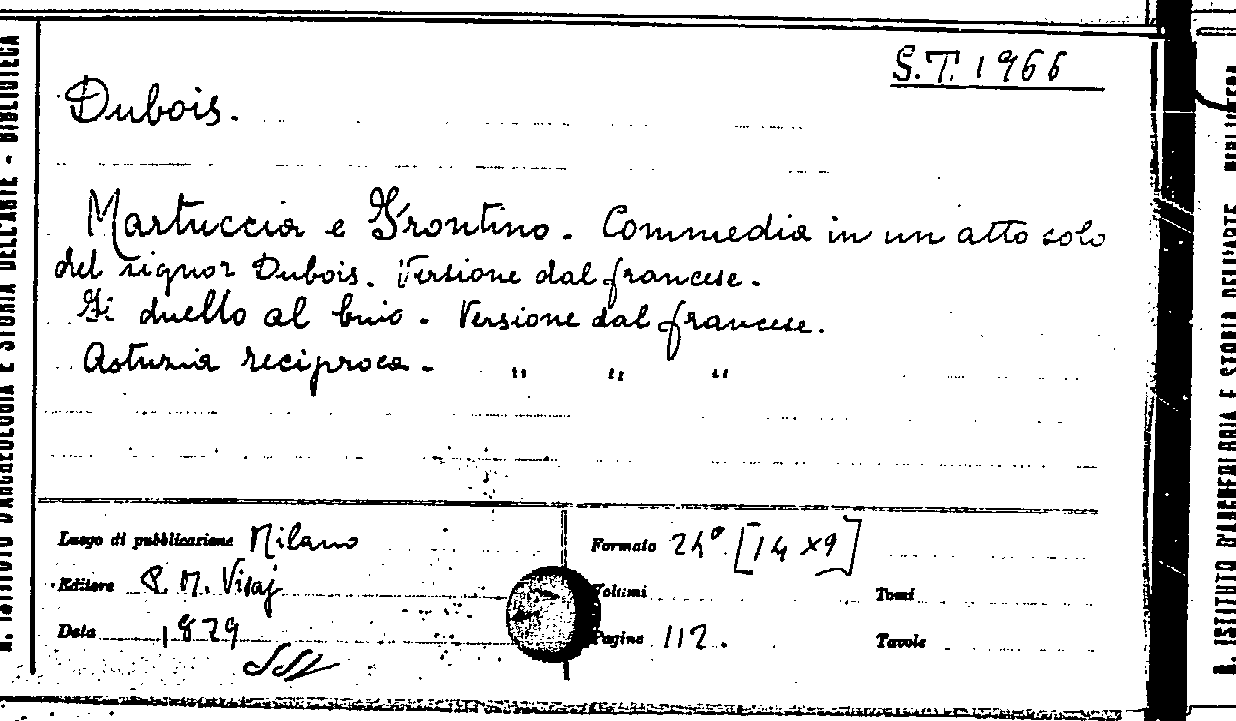 S.T. 1966
Dubois.
Martuccia e Frontino. Commedia in un atto solo
del signor Dubois. Versione dal francese.
Il duello al buio. Versione dal francese.
Astuzia reciproca. " " "
Luogo di pubblicazione Milano
Formato 24° [14 x 9]
Editore P. M. Visaj
Volumi
Tomi
Data 1829
Pagine 112.
Tavole
R. ISTITUTO D'ARCHEOLOGIA E STORIA DELL'ARTE - BIBLIOTECA
R. ISTITUTO D'ARCHEOLOGIA E STORIA DELL'ARTE BIBLIOTECA